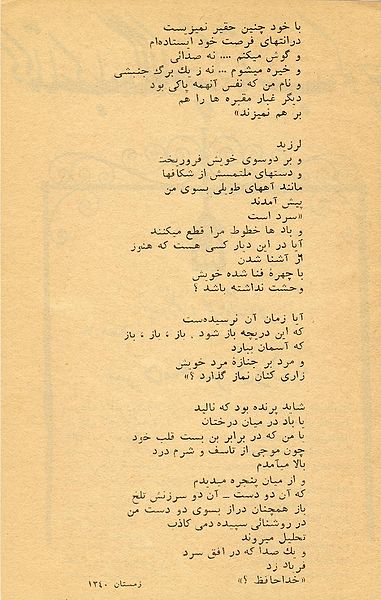 با خود چنین حقیر نمیزیست
درانتهای فرصت خود ایستاده‌ام
و گوش میکنم .... نه صدائی
و خیره میشوم ... نه ز یك برگ جنبشی
و نام من که نفس آنهمه پاکی بود
دیگر غبار مقبره ها را هم
بر هم نمیزند»
لرزید
و بر دوسوی خویش فروریخت
و دستهای ملتمسش از شکافها
مانند آههای طویلی بسوی من
پیش آمدند
«سرد است
و باد ها خطوط مرا قطع میکنند
آیا در این دیار کسی هست که هنوز
از آشنا شدن
با چهرهٔ فنا شده خویش
وحشت نداشته باشد ؟
آیا زمان آن نرسیده‌ست
که این دریچه باز شود . باز ، باز ، باز
که آسمان ببارد
و مرد بر جنازهٔ مرد خویش
زاری کنان نماز گذارد ؟»
شاید پرنده بود که نالید
یا باد در میان درختان
یا من که در برابر بن بست قلب خود
چون موجی از تاسف و شرم درد
بالا میآمدم
و از میان پنجره میدیدم
که آن دو دست ـ آن دو سرزنش تلخ
باز همچنان دراز بسوی دو دست من
در روشنائی سپیده دمی کاذب
تحلیل میروند
و یك صدا که در افق سرد
فریاد زد
«خداحافظ ؟»
زمستان ۱۳۴۰